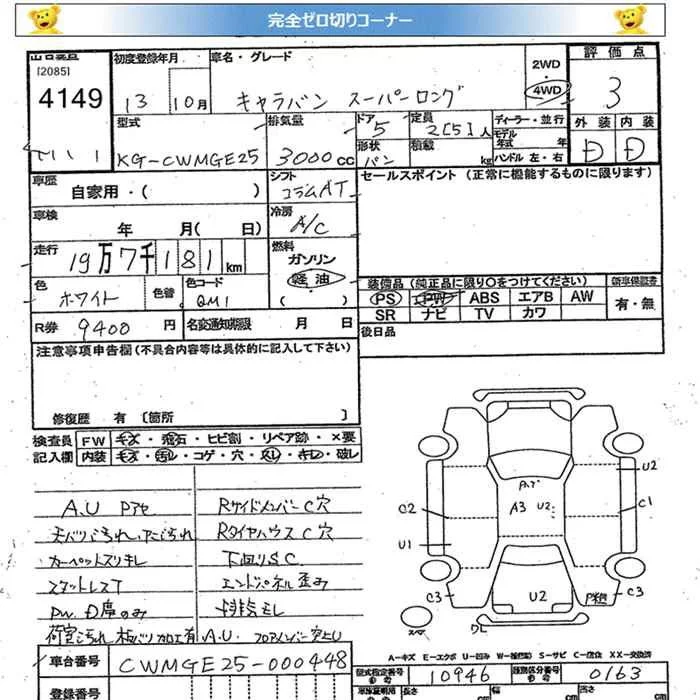 完全ゼロ切りコーナー
[2085]
4149
初度登録年月
13 10月
車名・グレード
キャラバン スーパーロング
2WD
4WD
評価点
3
型式
KG-CWMGE25
排気量
3000cc
ドア
5
形状
バン
定員
2[5]人
積載
kg
ディーラー・並行
モデル年式 年
ハンドル 左・右
外装 内装
D D
車歴
自家用・( )
シフト
コラムAT
セールスポイント (正常に機能するものに限ります)
車検
年 月( 日)
冷房
A/C
走行
19万7千181km
燃料
ガソリン
軽油
( )
色
ホワイト
色替
色コード
QM1
装備品 (純正品に限り○をつけてください)
新車保証書
PS PW ABS エアB AW
有・無
SR ナビ TV カワ
R券 9400 円
名変通知期限 月 日
後日品
注意事項申告欄 (不具合内容等は具体的に記入して下さい)
修復歴 有 [箇所 ]
検査員記入欄
FW キズ・飛石・ヒビ割・リペア跡・×要
内装 キズ・汚れ・コゲ・穴・スレ・キレ・破レ
A.U Pアセ
天バリ汚れ
カーペットスリキレ
スタットレスT
PW D席のみ
荷室汚れ 板バリ加工有
Rサイドメンバー C穴
RタイヤハウスC穴
下回りSC
エンドパネル歪み
排気モレ
A.U フロアメンバー突上U
A3 U2
U2
C2
C1
U1
C3
U2
C3
A-キズ E-エクボ U-凹み W-補修跡 S-サビ C-腐食 XX-交換済
車台番号
CWMGE25-000448
型式指定番号
参考
10946
類別区分番号
参考
0163
登録番号
長さ
幅
高さ